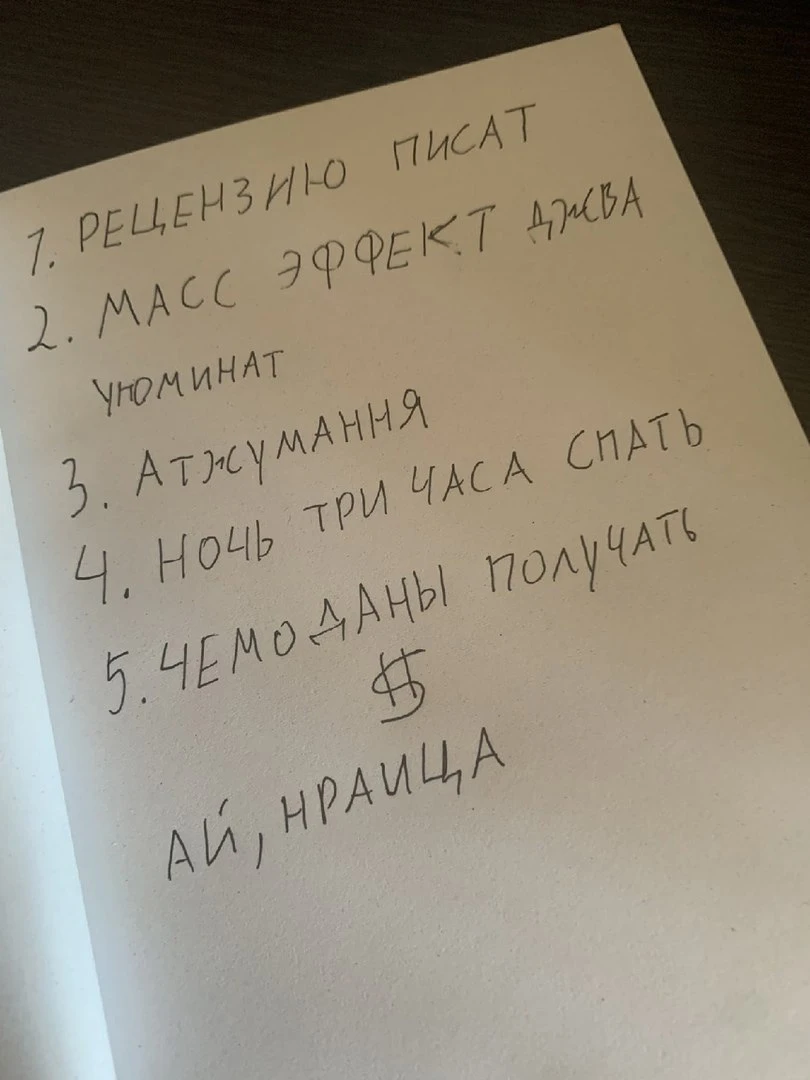 1. РЕЦЕНЗИЮ ПИСАТ
2. МАСС ЭФФЕКТ ДЖВА
УЮМИНАТ
3. АТЖУМАННЯ
4. НОЧЬ ТРИ ЧАСА СПАТЬ
5. ЧЕМОДАНЫ ПОЛУЧАТЬ
$
АЙ, НРАИЦА